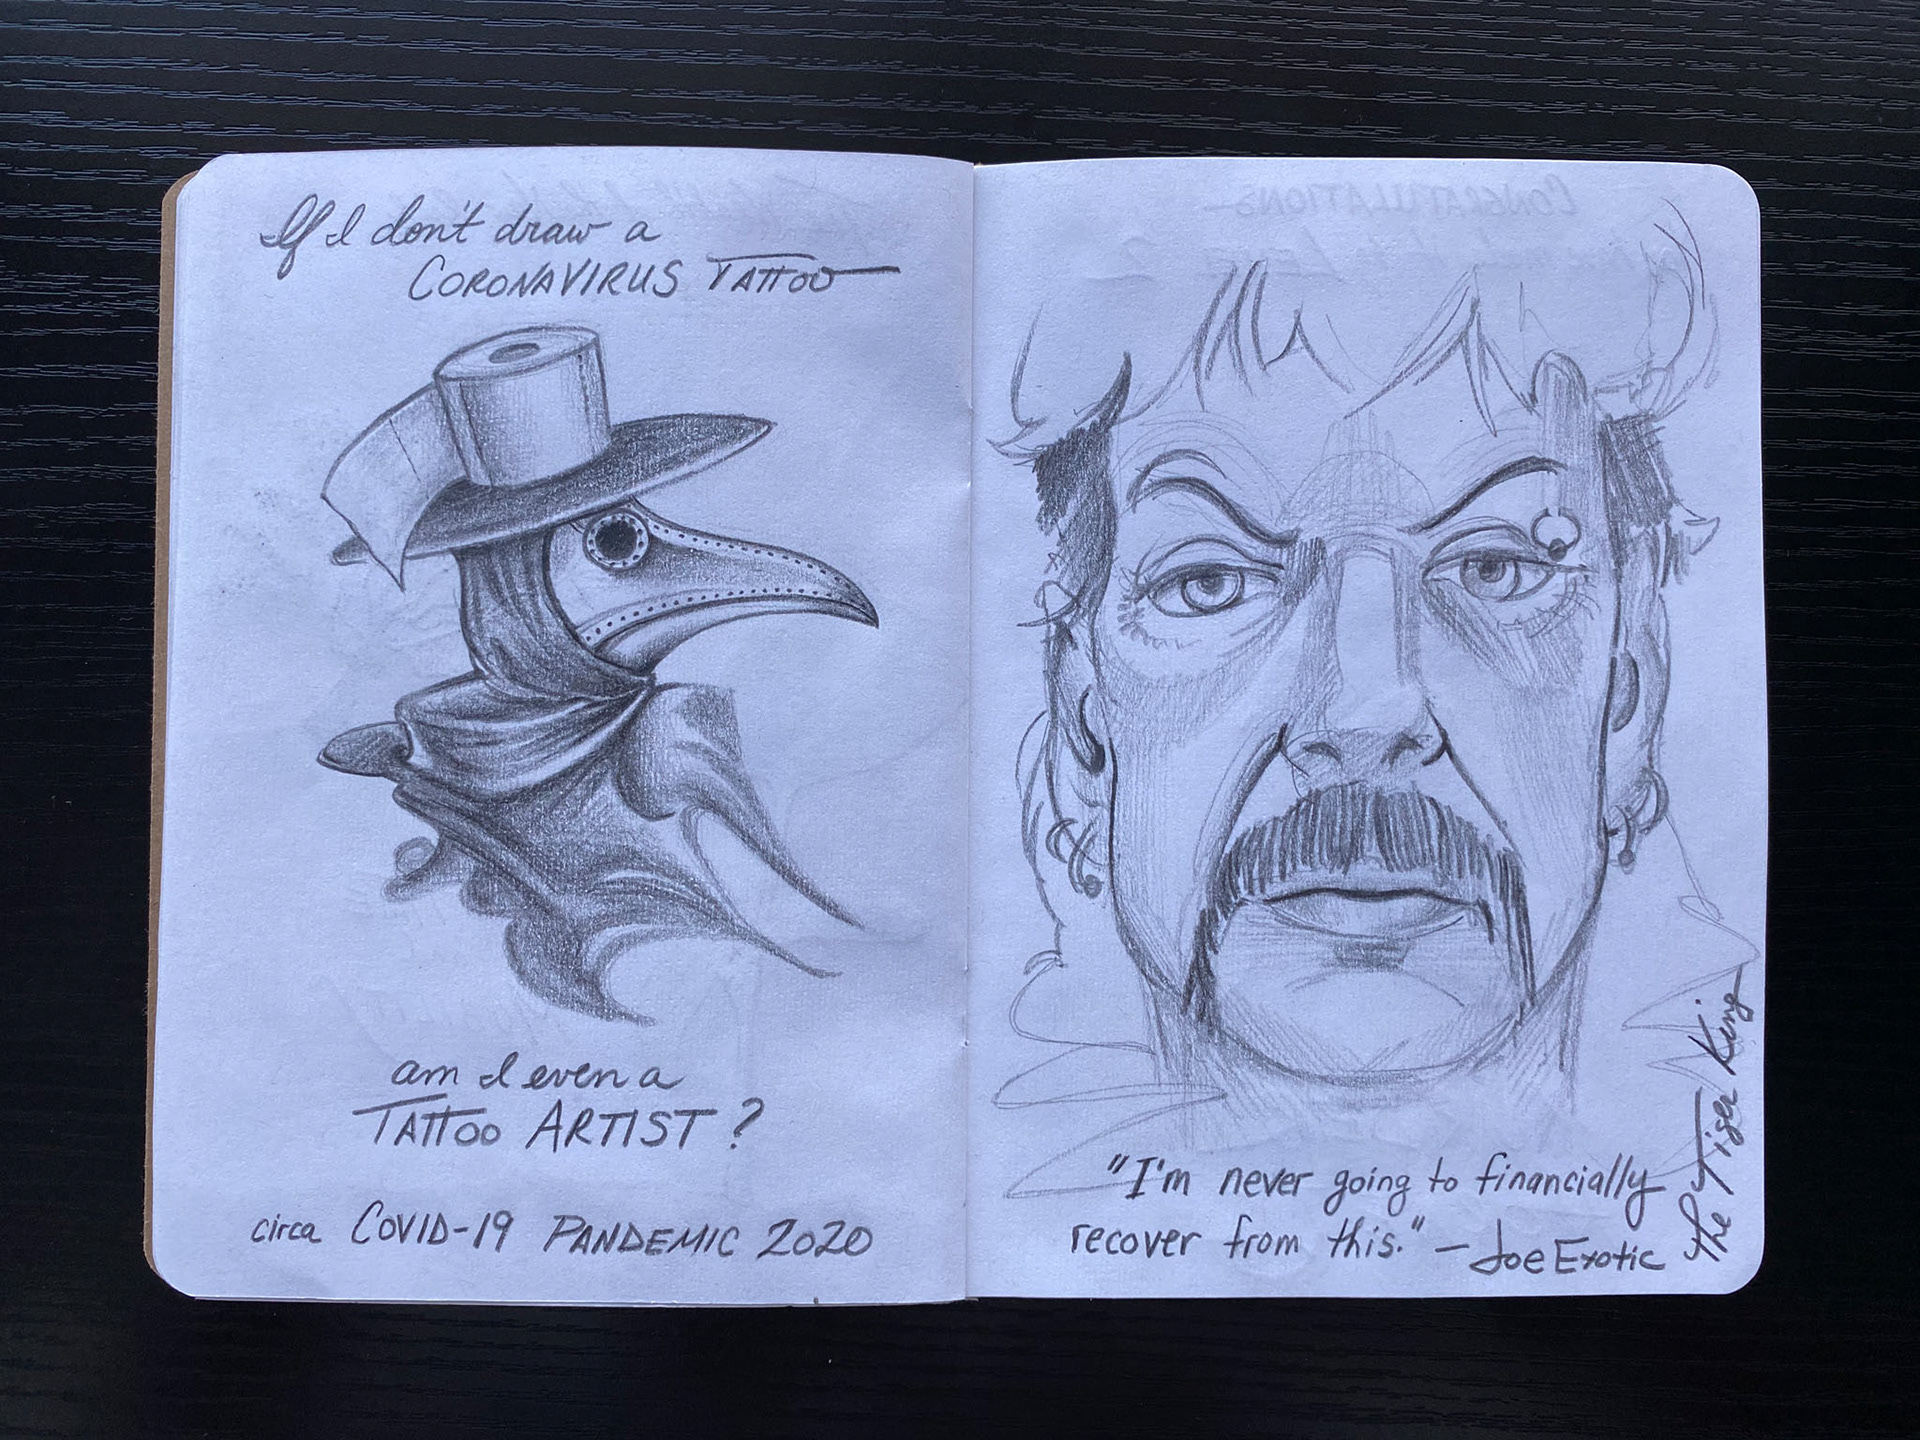 If I don't draw a
CORONAVIRUS TATTOO
am I even a
TATTOO ARTIST?
circa COVID-19 PANDEMIC 2020
CONGRATULATIONS
"I'm never going to financially
recover from this." - Joe Exotic
The Tiger King